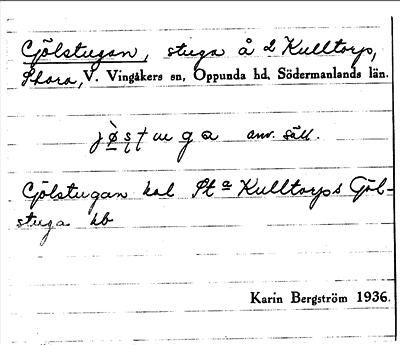 Gölstugan, stuga å 2 Kulltorp,
Stora, V. Vingåkers sn, Oppunda hd, Södermanlands län.
anv. säll.
Gölstugan kal St a Kulltorps Göl-
stuga hb
Karin Bergström 1936.